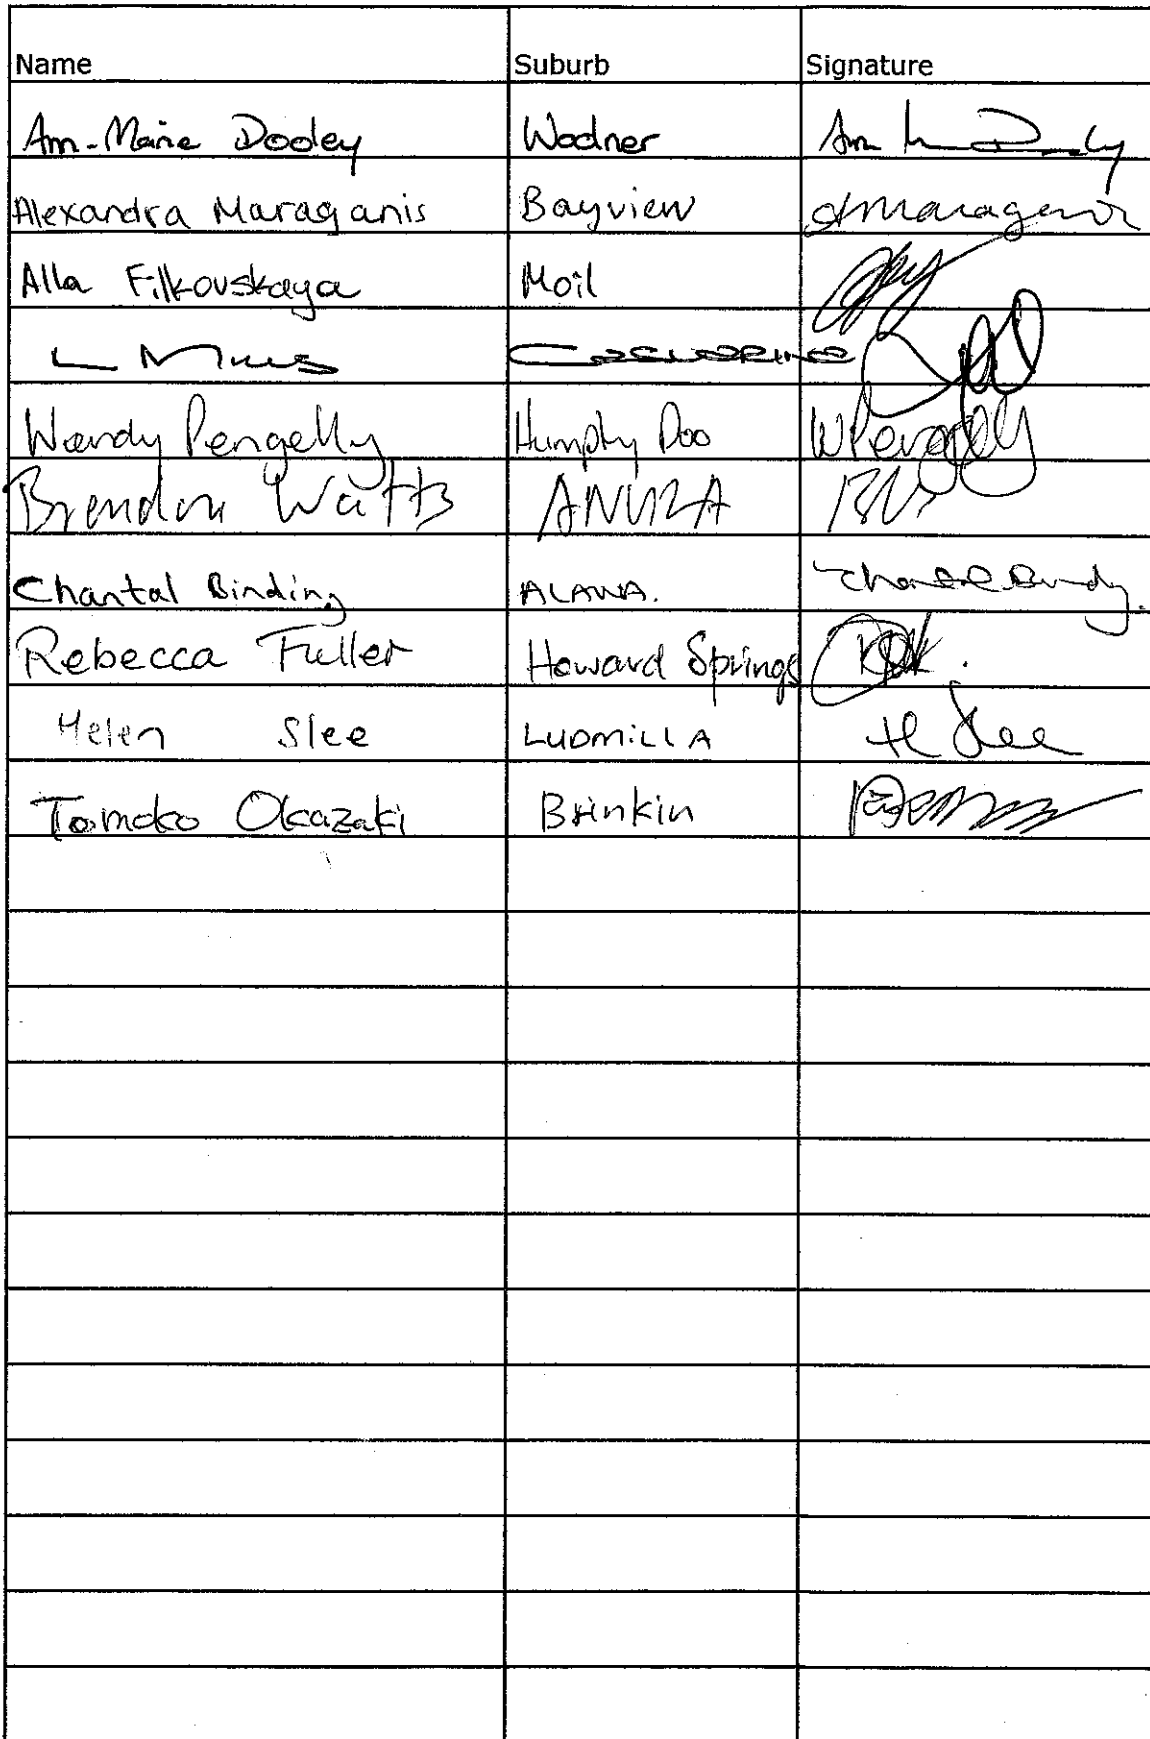 Name Suburb Signature
Ann-Marie Dooley Wodner
Alexandra Maraganis Bayview AMaraganis
Alla Filkovskaya Moil
L
Wendy Pengelly Humpty Doo WPengelly
Brendon Watts ANULA
Chantal Binding ALAWA. Chantal Binding.
Rebecca Fuller Howard Springs
Helen Slee LUDMILLA H Slee
Tomoko Okazaki Brinkin